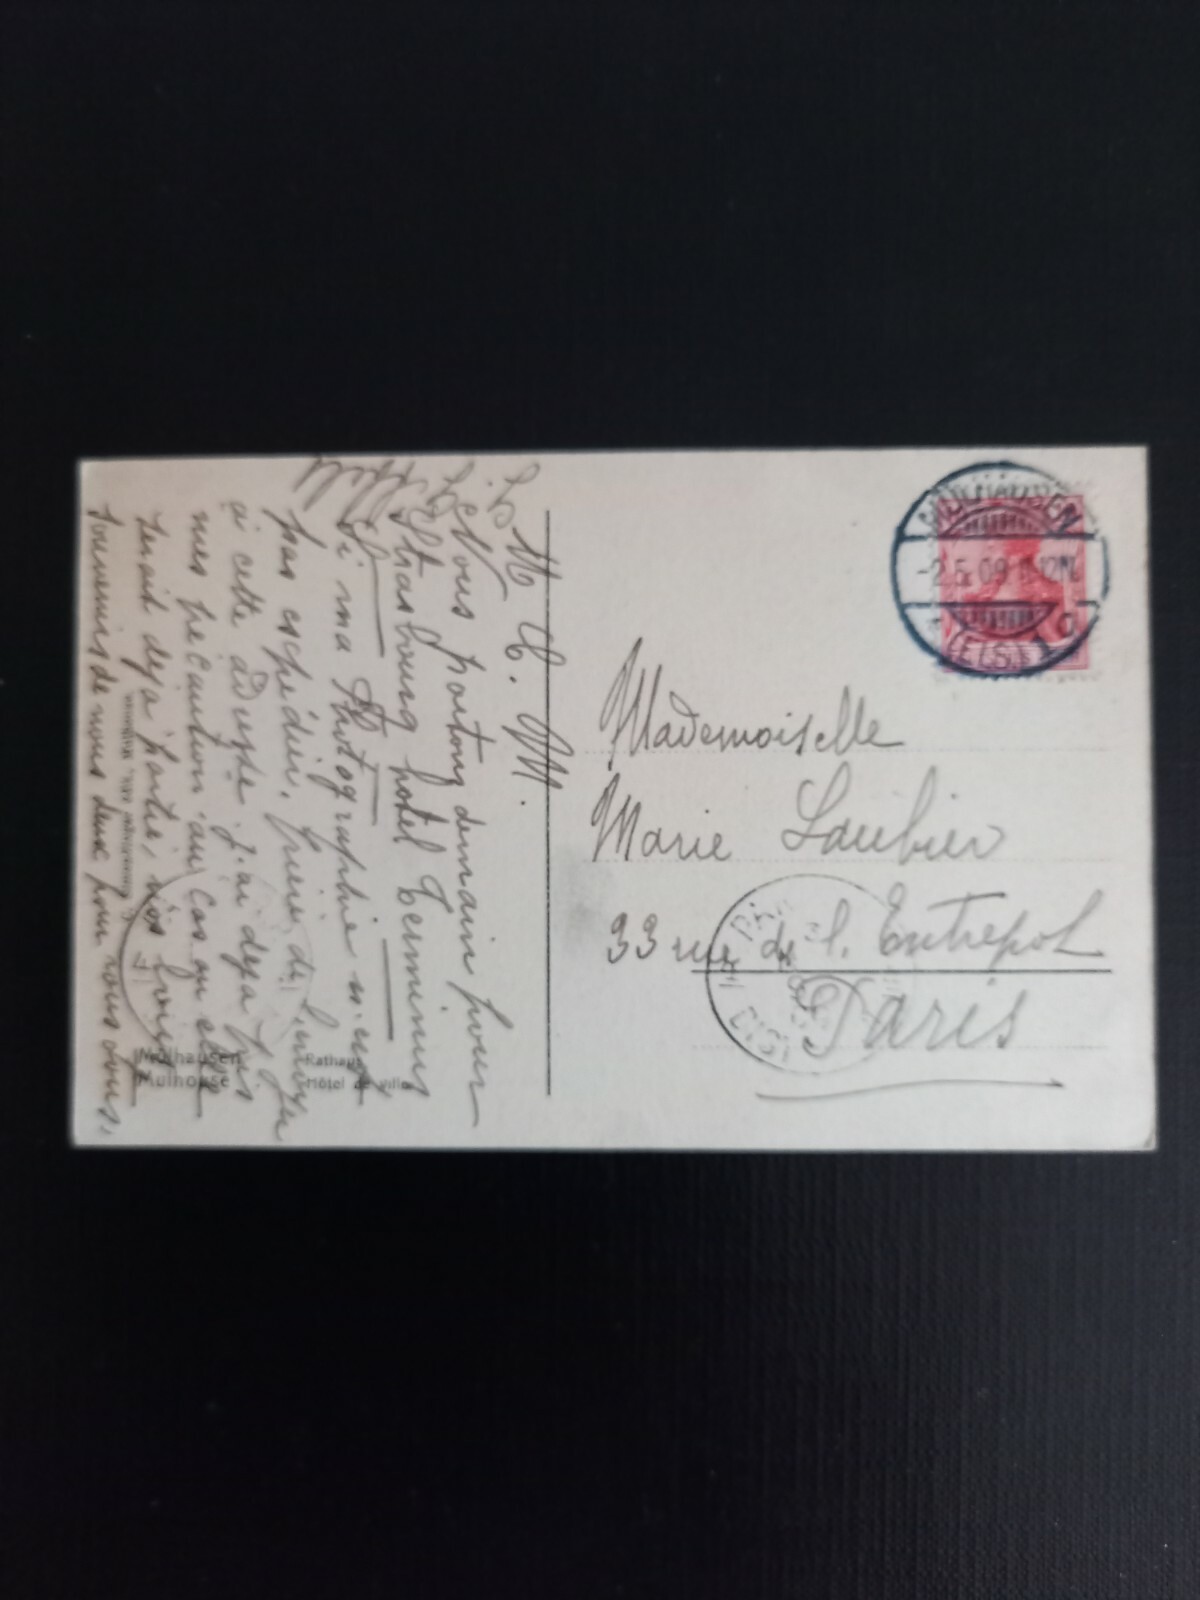 M C. M.
Nous partons demain pour
Strasbourg hotel Terminus
si ma photographie n'est
pas expédiée, prière de l'envoyer
à cette adresse j'ai déjà pris
mes précaution au cas ou elle
serait déja partie, nos
souvenirs de nous deux pour vous
Mülhausen Rathaus
Mulhouse Hôtel de ville
MÜLHAUSEN
-2.5.09
(ELS.)
Mademoiselle
Marie Laubier
33 rue de l. Entrepot
Paris
PARIS
DIST